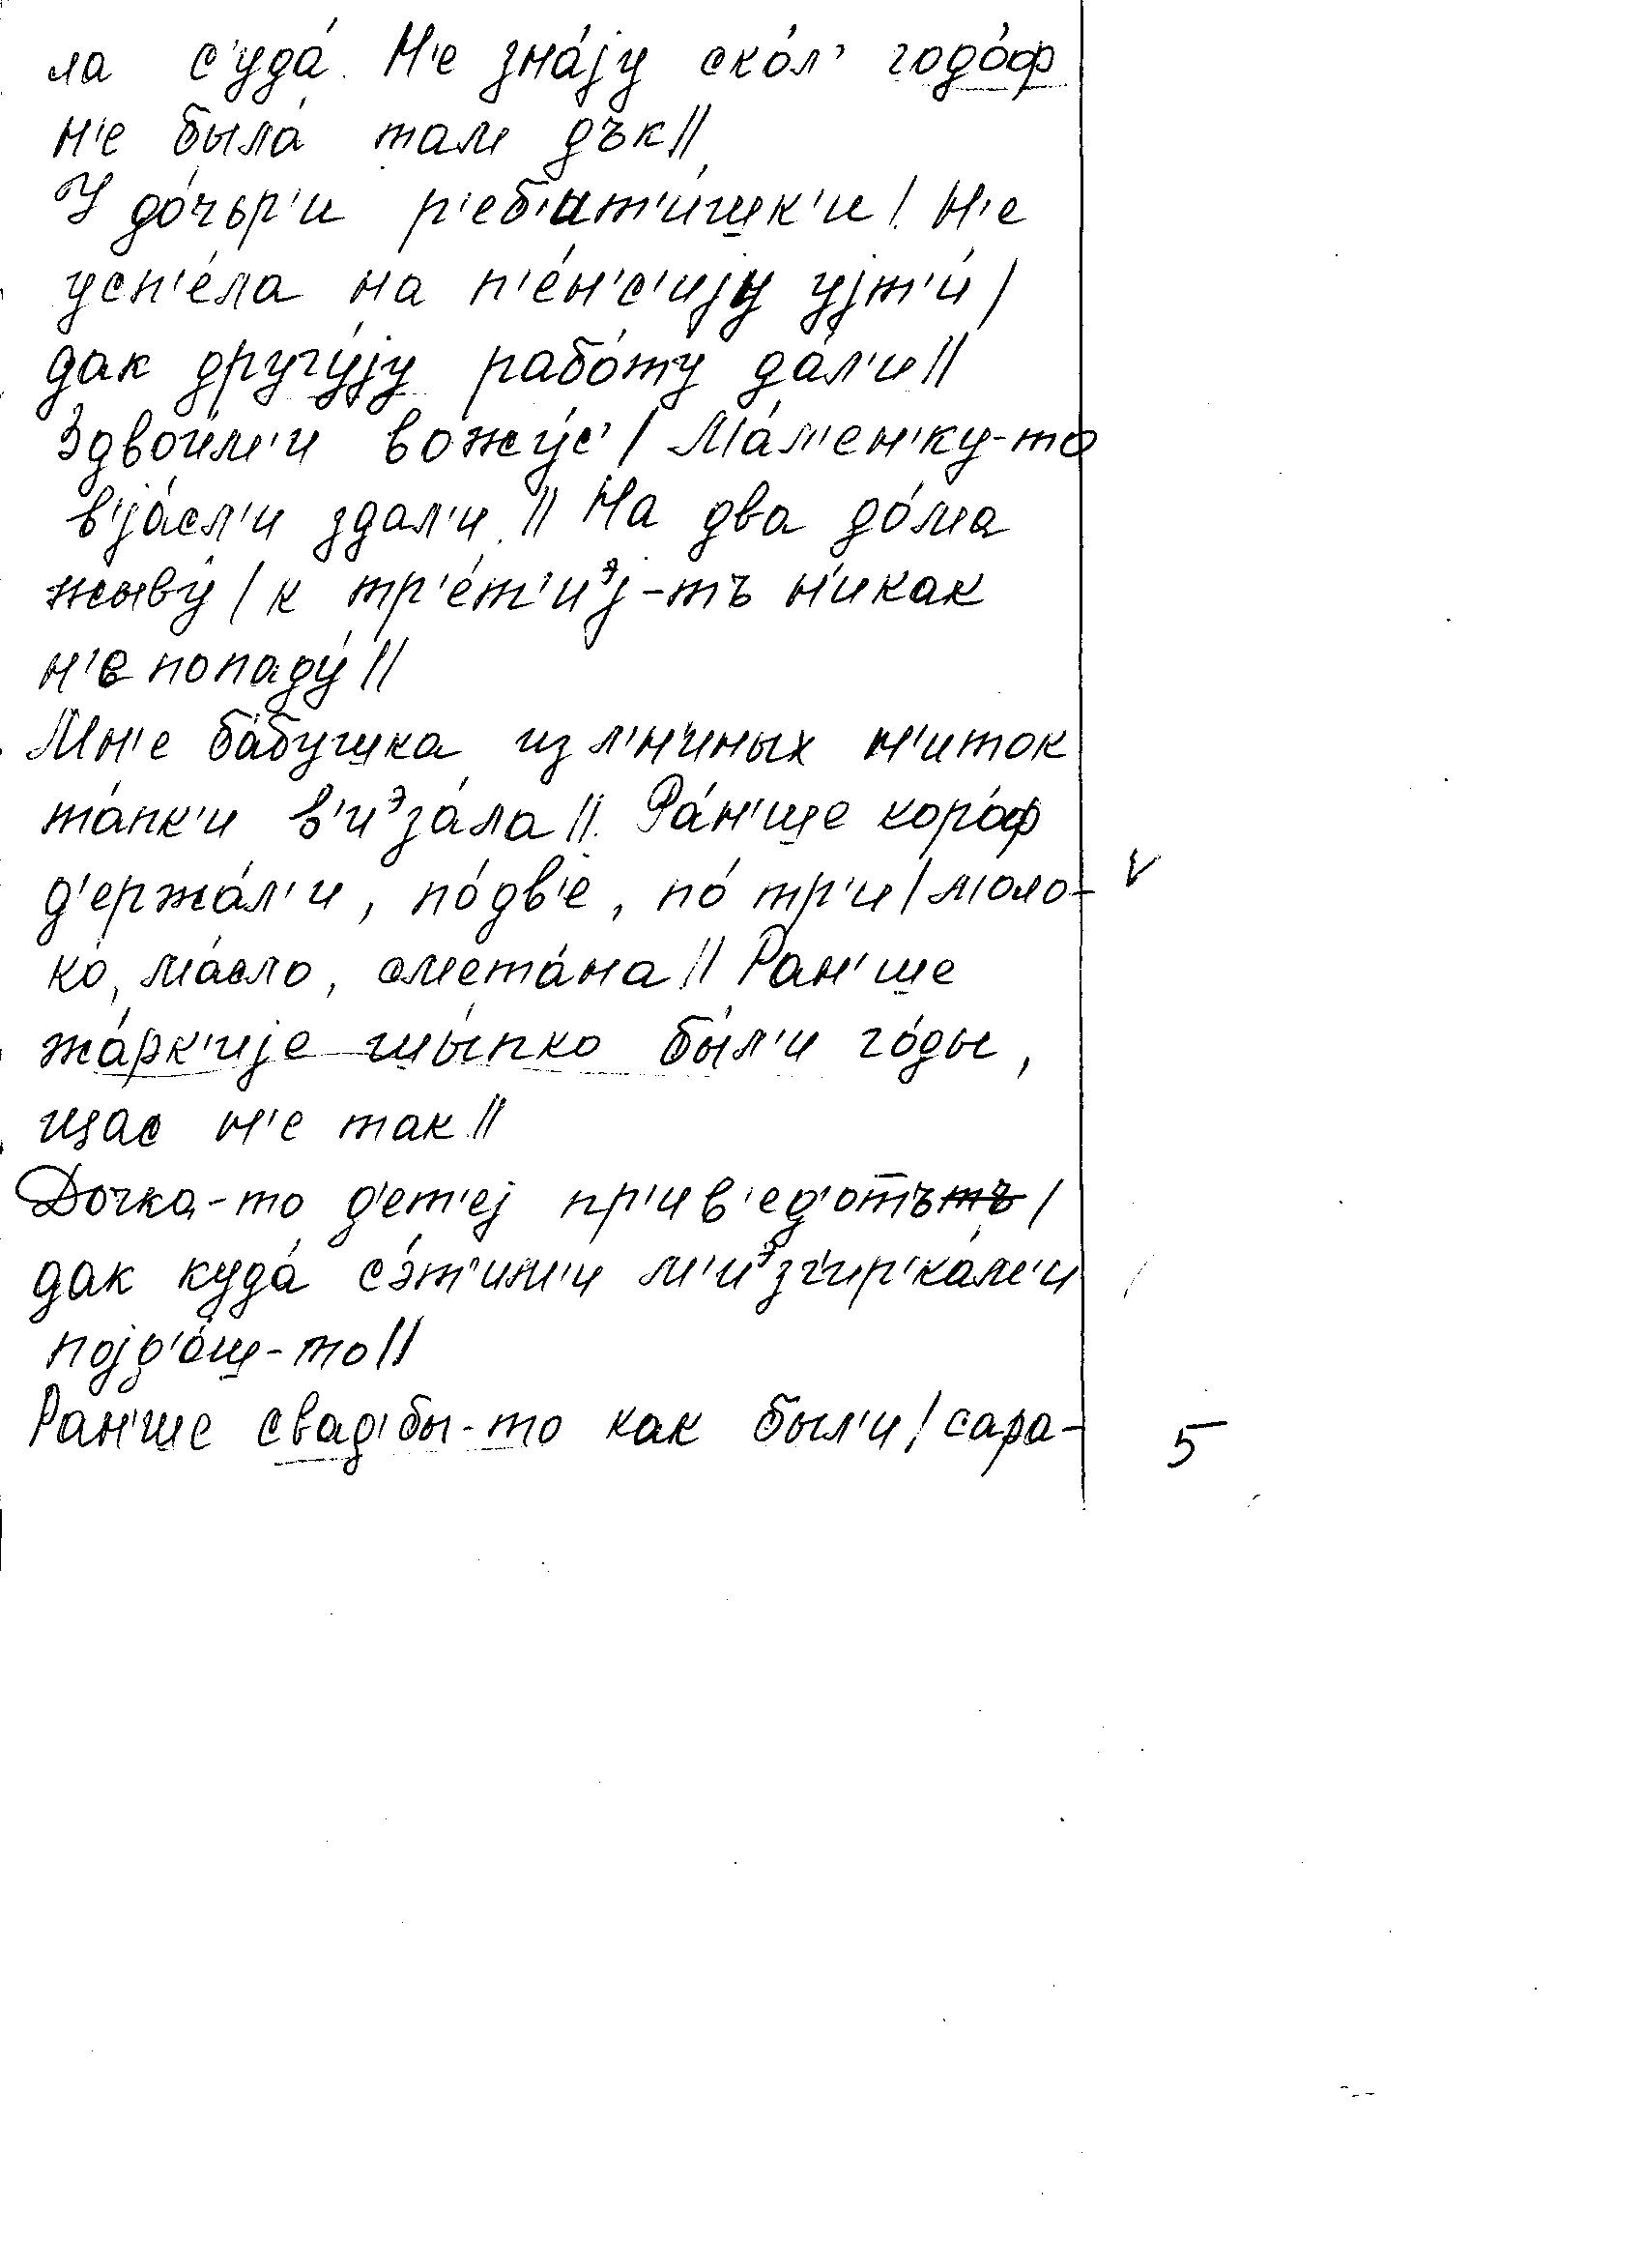 ла с'уда́. Н'е зна́jу ско́л' годо́ф
н'е была́ там дък//
У до́чьр'и р'еб'ат'и́шк'и/ Н'е
усп'е́ла на п'е́н'с'иjу уjт'и́/
дак другу́jу рабо́ту да́л'и//
Здвои́м'и вожу́с'/ Ма́л'ен'ку-то
в'jа́сл'и здал'и // На два до́ма
жыву́/ к тр'е́т'иᵊj-тъ н'икак
н'е попаду́//
Мн'е ба́бушка из л'н'иных н'иток
та́пк'и в'иᵊза́ла// Ра́н'ше коро́ф
д'ержа́л'и, по́ дв'е, по́ тр'и/ моло-
ко́, ма́сло, смета́на// Ран'ше
жа́рк'иjе шы́пко бы́л'и го́ды,
щас н'е так//
Дочка-то д'ет'еj пр'ив'ед'отъ/
дак куда́ сэ́т'им'и м'иᵊзг'ир'ка́м'и
поjд'о́ш-то//
Ран'ше свад'бы-то как был'и/ сара-
V
5